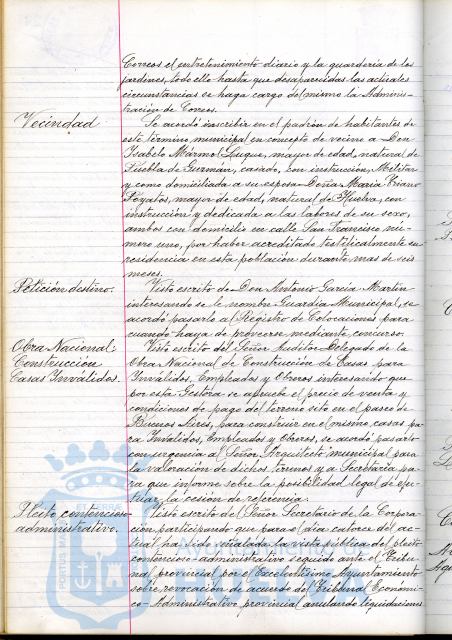 Correos el entretenimiento diario y la guardería de los
jardines, todo ello hasta que desaparecidas las actuales
circunstancias se haga cargo del mismo la Adminis-
tración de Correos.
Vecindad
Se acordó inscribir en el padrón de habitantes de
este término municipal en concepto de vecino a Don
Isabelo Mármol Luque, mayor de edad, natural de
Puebla de Guzmán, casado, con instrucción, Militar
y como domiciliada a su esposa Doña María Triano
Poyatos, mayor de edad, natural de Huelva, con
instrucción y dedicada a las labores de su sexo,
ambos con domicilio en calle San Francisco nú-
mero uno, por haber acreditado testificalmente su
residencia en esta población durante mas de seis
meses.
Petición destino.
Visto escrito de Don Antonio García Martín
interesando se le nombre Guardia Municipal, se
acordó pasarle al Registro de Colocaciones para
cuando haya de proveerse mediante concurso.
Obra Nacional:
Construcción
Casas Inválidos.
Visto escrito del Señor Auditor Delegado de la
Obra Nacional de Construcción de Casas para
Inválidos, Empleados y Obreros interesando que
por esta Gestora se apruebe el precio de venta y
condiciones de pago del terreno sito en el paseo de
Buenos Aires, para construir en el mismo casas pa-
ra Inválidos, Empleados y Obreros, se acordó pasarlo
con urgencia al Señor Arquitecto municipal para
la valoración de dichos terrenos y a Secretaría pa-
ra que informe sobre la posibilidad legal de efec-
tuar la cesión de referencia.
Pleito contencioso
administrativo.
Visto escrito del Señor Secretario de la Corpora-
ción participando que para el día catorce del ac-
tual ha sido señalada la vista pública del pleito
contencioso-administrativo seguido ante el Tribu-
nal provincial por el Excelentísimo Ayuntamiento
sobre revocación de acuerdo del Tribunal Económi-
co-Administrativo provincial anulando liquidaciones